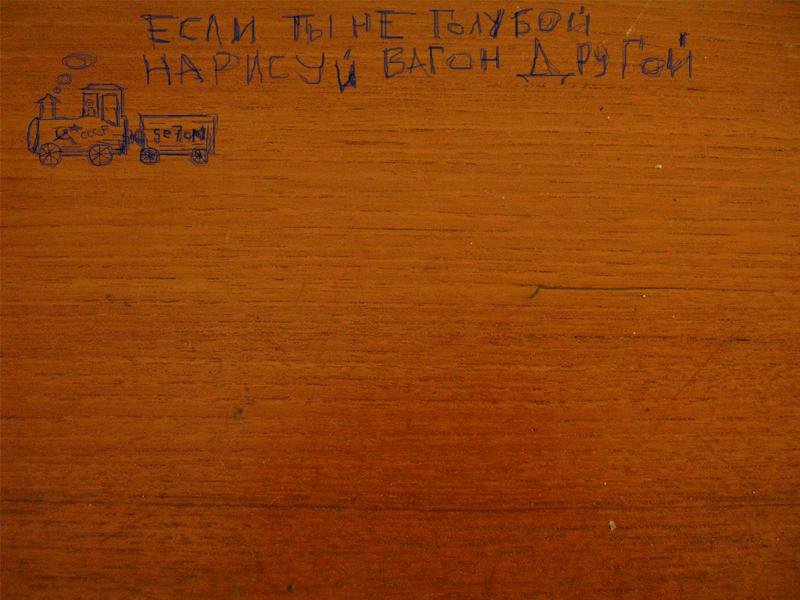 ЕСЛИ ТЫ НЕ ГОЛУБОЙ
НАРИСУЙ ВАГОН ДРУГОЙ
СССР